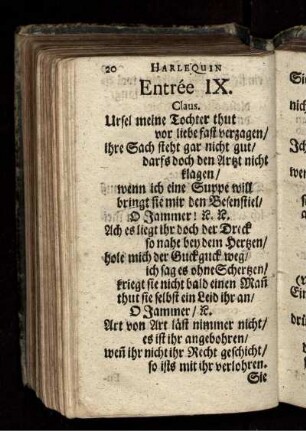 20 HARLEQUIN
Entrée IX.
Claus.
Ursel meine Tochter thut
vor liebe fast verzagen/
ihre Sach steht gar nicht gut/
darfs doch den Artzt nicht
klagen/
wenn ich eine Suppe will
bringt sie mir den Besenstiel/
O Jammer! ꝛc. ꝛc.
Ach es liegt ihr doch der Dreck
so nahe bey dem Hertzen/
hole mich der Guckguck weg/
ich sag es ohne Schertzen/
kriegt sie nicht bald einen Mañ
thut sie selbst ein Leid ihr an/
O Jammer/ ꝛc.
Art von Art läst nimmer nicht/
es ist ihr angebohren/
weñ ihr nicht ihr Recht geschicht/
so ists mit ihr verlohren.
Sie